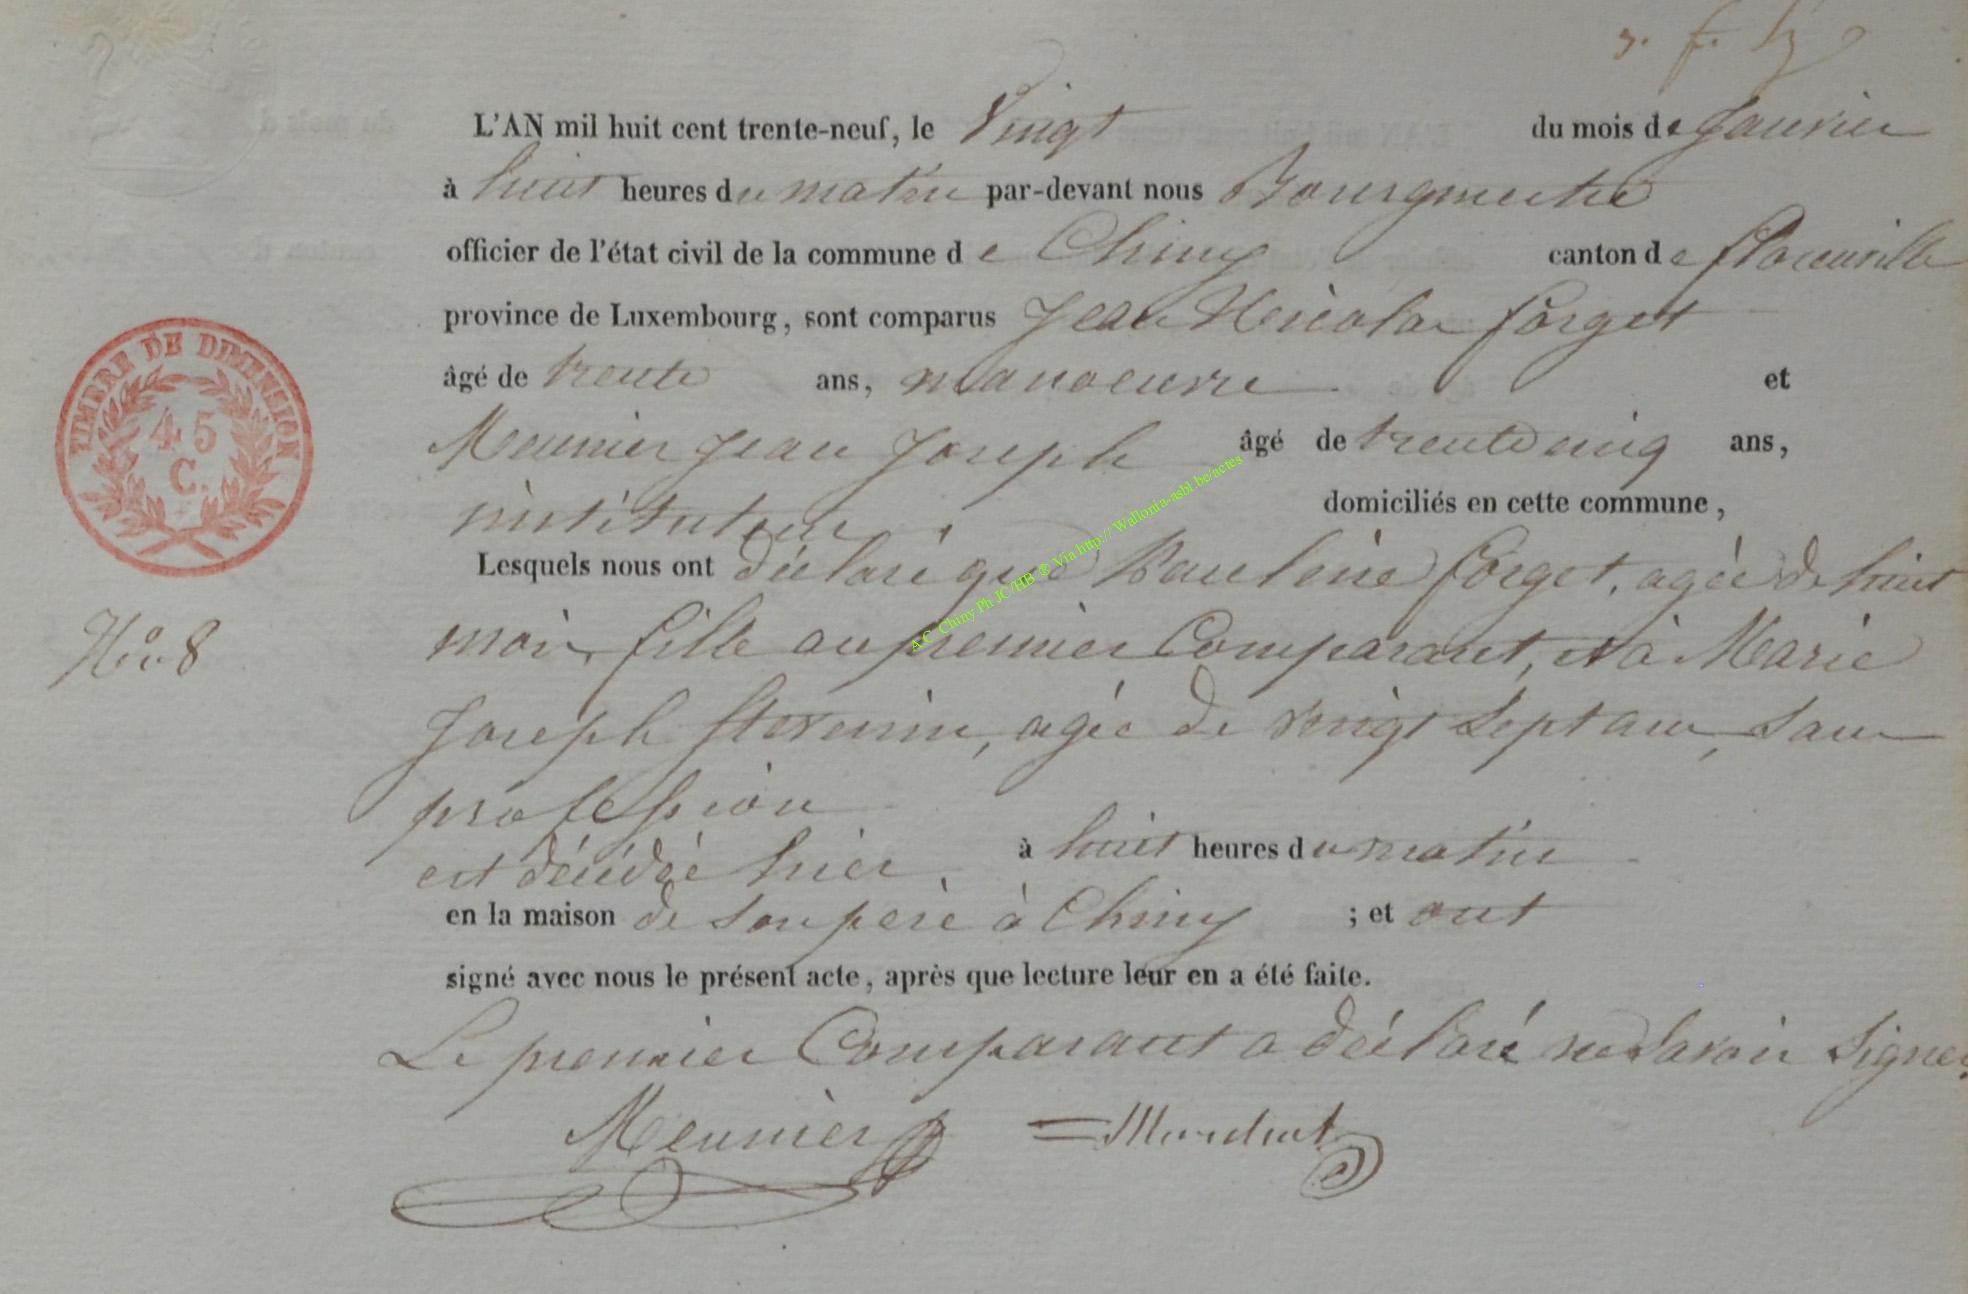 L'AN mil huit cent trente-neuf, le Vingt du mois de Janvier
à huit heures du matin par-devant nous Bourgmestre
officier de l'état civil de la commune de Chiny canton de florenville
province de Luxembourg, sont comparus Jean Nicolas forget
âgé de trente ans, manoeuvre et
Meunier Jean Joseph âgé de trente cinq ans,
instituteur domiciliés en cette commune,
Lesquels nous ont déclaré que Pauline forget, agée de huit
mois, fille au premier Comparant, et à Marie
Joseph Stevenin, agée de vingt Sept ans, Sans
profession
est décédée hier, à huit heures du matin
en la maison de Son père à Chiny ; et ont
signé avec nous le présent acte, après que lecture leur en a été faite.
Le premier Comparant a déclaré ne Savoir Signer.
Meunier
TIMBRE DE DIMENSION
45
C.
No. 8
A.C. Chiny Ph JC/HB ® Via http:// Wallonia-asbl.be/actes